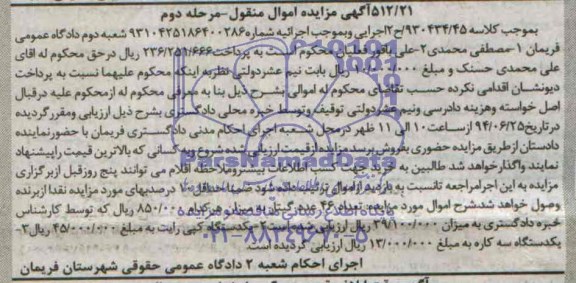 ۵۱۲/۲۱آگهی مزایده اموال منقول-مرحله دوم
بموجب کلاسه ۹۳۰۴۳۴/۴۵/ح۲اجرایی وبموجب اجرائیه شماره۹۳۱۰۴۲۵۱۸۶۴۰۰۲۸۶ شعبه دوم دادگاه عمومی
فریمان ۱-مصطفی محمدی۲-علی محکوم است به پرداخت۲۳۶/۲۵۱/۶۶۶ ریال درحق محکوم له اقای
علی محمدی حسنک و مبلغ ریال بابت نیم عشردولتی نظربه اینکه محکوم علیهما نسبت به پرداخت
دیونشان اقدامی نکرده حسب تقاضای محکوم له اموالی بشرح ذیل بنا به معرفی محکوم له ازمحکوم علیه درقبال
اصل خواسته وهزینه دادرسی ونیم عشردولتی توقیف وتوسط خبره محلی دادگستری بشرح ذیل ارزیابی ومقررگردیده
درتاریخ۹۴/۰۶/۲۵ ازساعت۱۰ الی ۱۱ ظهر درمحل شعبه اجرای احکام مدنی دادگستری فریمان با حضورنماینده
دادستان ازطریق مزایده حضوری بفروش برسد مزایده ازقیمت ارزیابی شده شروع وبه کسانی که بالاترین قیمت راپیشنهاد
نمایند واگذارخواهد شد طالبین به خرید جهت کسب اطلاعات بیشتروملاحظه اقلام می توانند پنج روزقبل ازبرگزاری
مزایده به این اجرامراجعه تانسبت به بازدید ازاموال داده شود ضمنا حداقل ۱۰ درصدبهای مورد مزایده نقدا ازبرنده
وصول خواهد شدشرح اموال مورد مزایده: تعداد ۴۶ عدد به میزان هر ۸۵۰/۰۰۰ ریال که توسط کارشناس
خبره دادگستری به میزان ۳۹/۱۰۰/۰۰۰ ریال ارزیابی شده است ۲-یکدستگاه کپی رایت به مبلغ ۴۵/۰۰۰/۰۰۰ ریال۳-
یکدستگاه سه کاره به مبلغ ۱۳/۰۰۰/۰۰۰ ریال ارزیابی گردیده است.
اجرای احکام شعبه ۲ دادگاه عمومی حقوقی شهرستان فریمان
ParsNamadData
۰۲۱-۸۸۳۴۹۶۷۰-۵